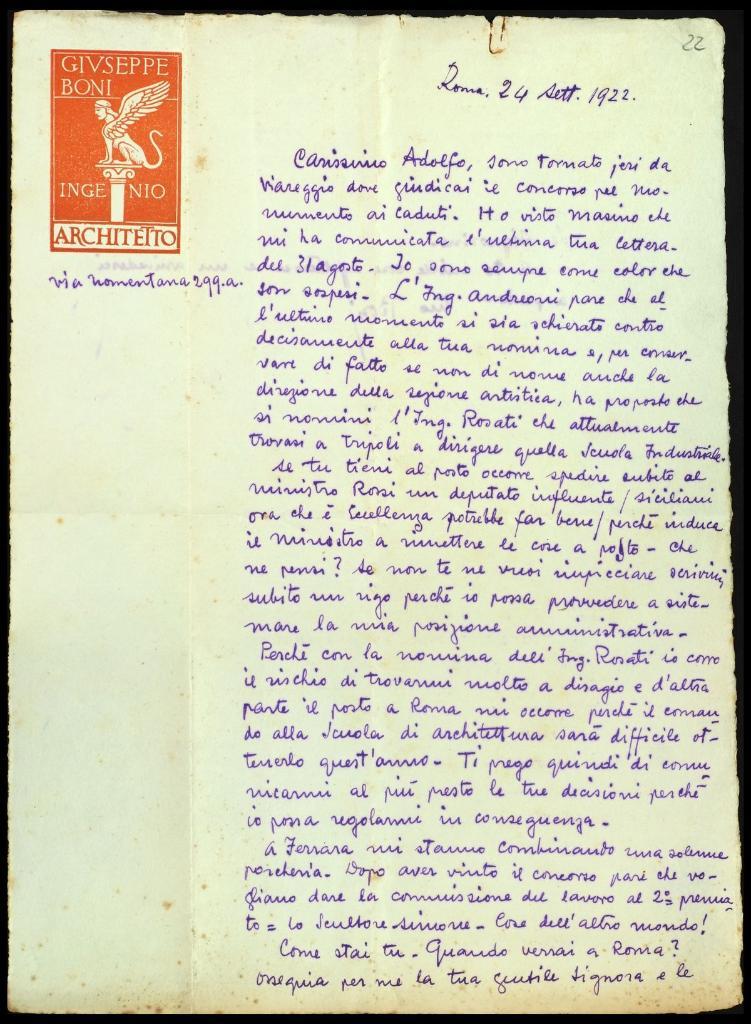 22
GIVSEPPE
BONI
INGE NIO
ARCHITETTO
via nomentana 299.a.
Roma. 24 Sett. 1922.
Carissimo Adolfo, sono tornato jeri da
Viareggio dove giudicai il concorso pel mo-
numento ai Caduti. Ho visto Masino che
mi ha comunicata l'ultima tua lettera
del 31 agosto. Io sono sempre come color che
son sospesi. L'Ing. Andreoni pare che al
l'ultimo momento si sia schierato contro
decisamente alla tua nomina e, per conser-
vare di fatto se non di nome anche la
direzione della sezione artistica, ha proposto che
si nomini l'Ing. Rosati che attualmente
trovasi a Tripoli a dirigere quella Scuola Industriale.
Se tu tieni al posto occorre spedire subito al
ministro Rossi un deputato influente / siciliani
ora che è Eccellenza potrebbe far bene / perché induca
il ministro a rimettere le cose a posto - che
ne pensi? Se non te ne vuoi impicciare scrivimi
subito un rigo perché io possa provvedere a siste-
mare la mia posizione amministrativa -
Perché con la nomina dell'Ing. Rosati io corro
il rischio di trovarmi molto a disagio e d'altra
parte il posto a Roma mi occorre perché il coman
do alla Scuola di architettura sarà difficile ot-
tenerlo quest'anno - Ti prego quindi di comu
nicarmi al più presto le tue decisioni perché
io possa regolarmi in conseguenza -
A Ferrara mi stanno combinando una solenne
porcheria. Dopo aver vinto il concorso pare che vo-
gliano dare la commissione del lavoro al 2º premia-
to = lo Scultore Simone - Cose dell'altro mondo!
Come stai tu - Quando verrai a Roma?
Ossequia per me la tua gentile Signora e le